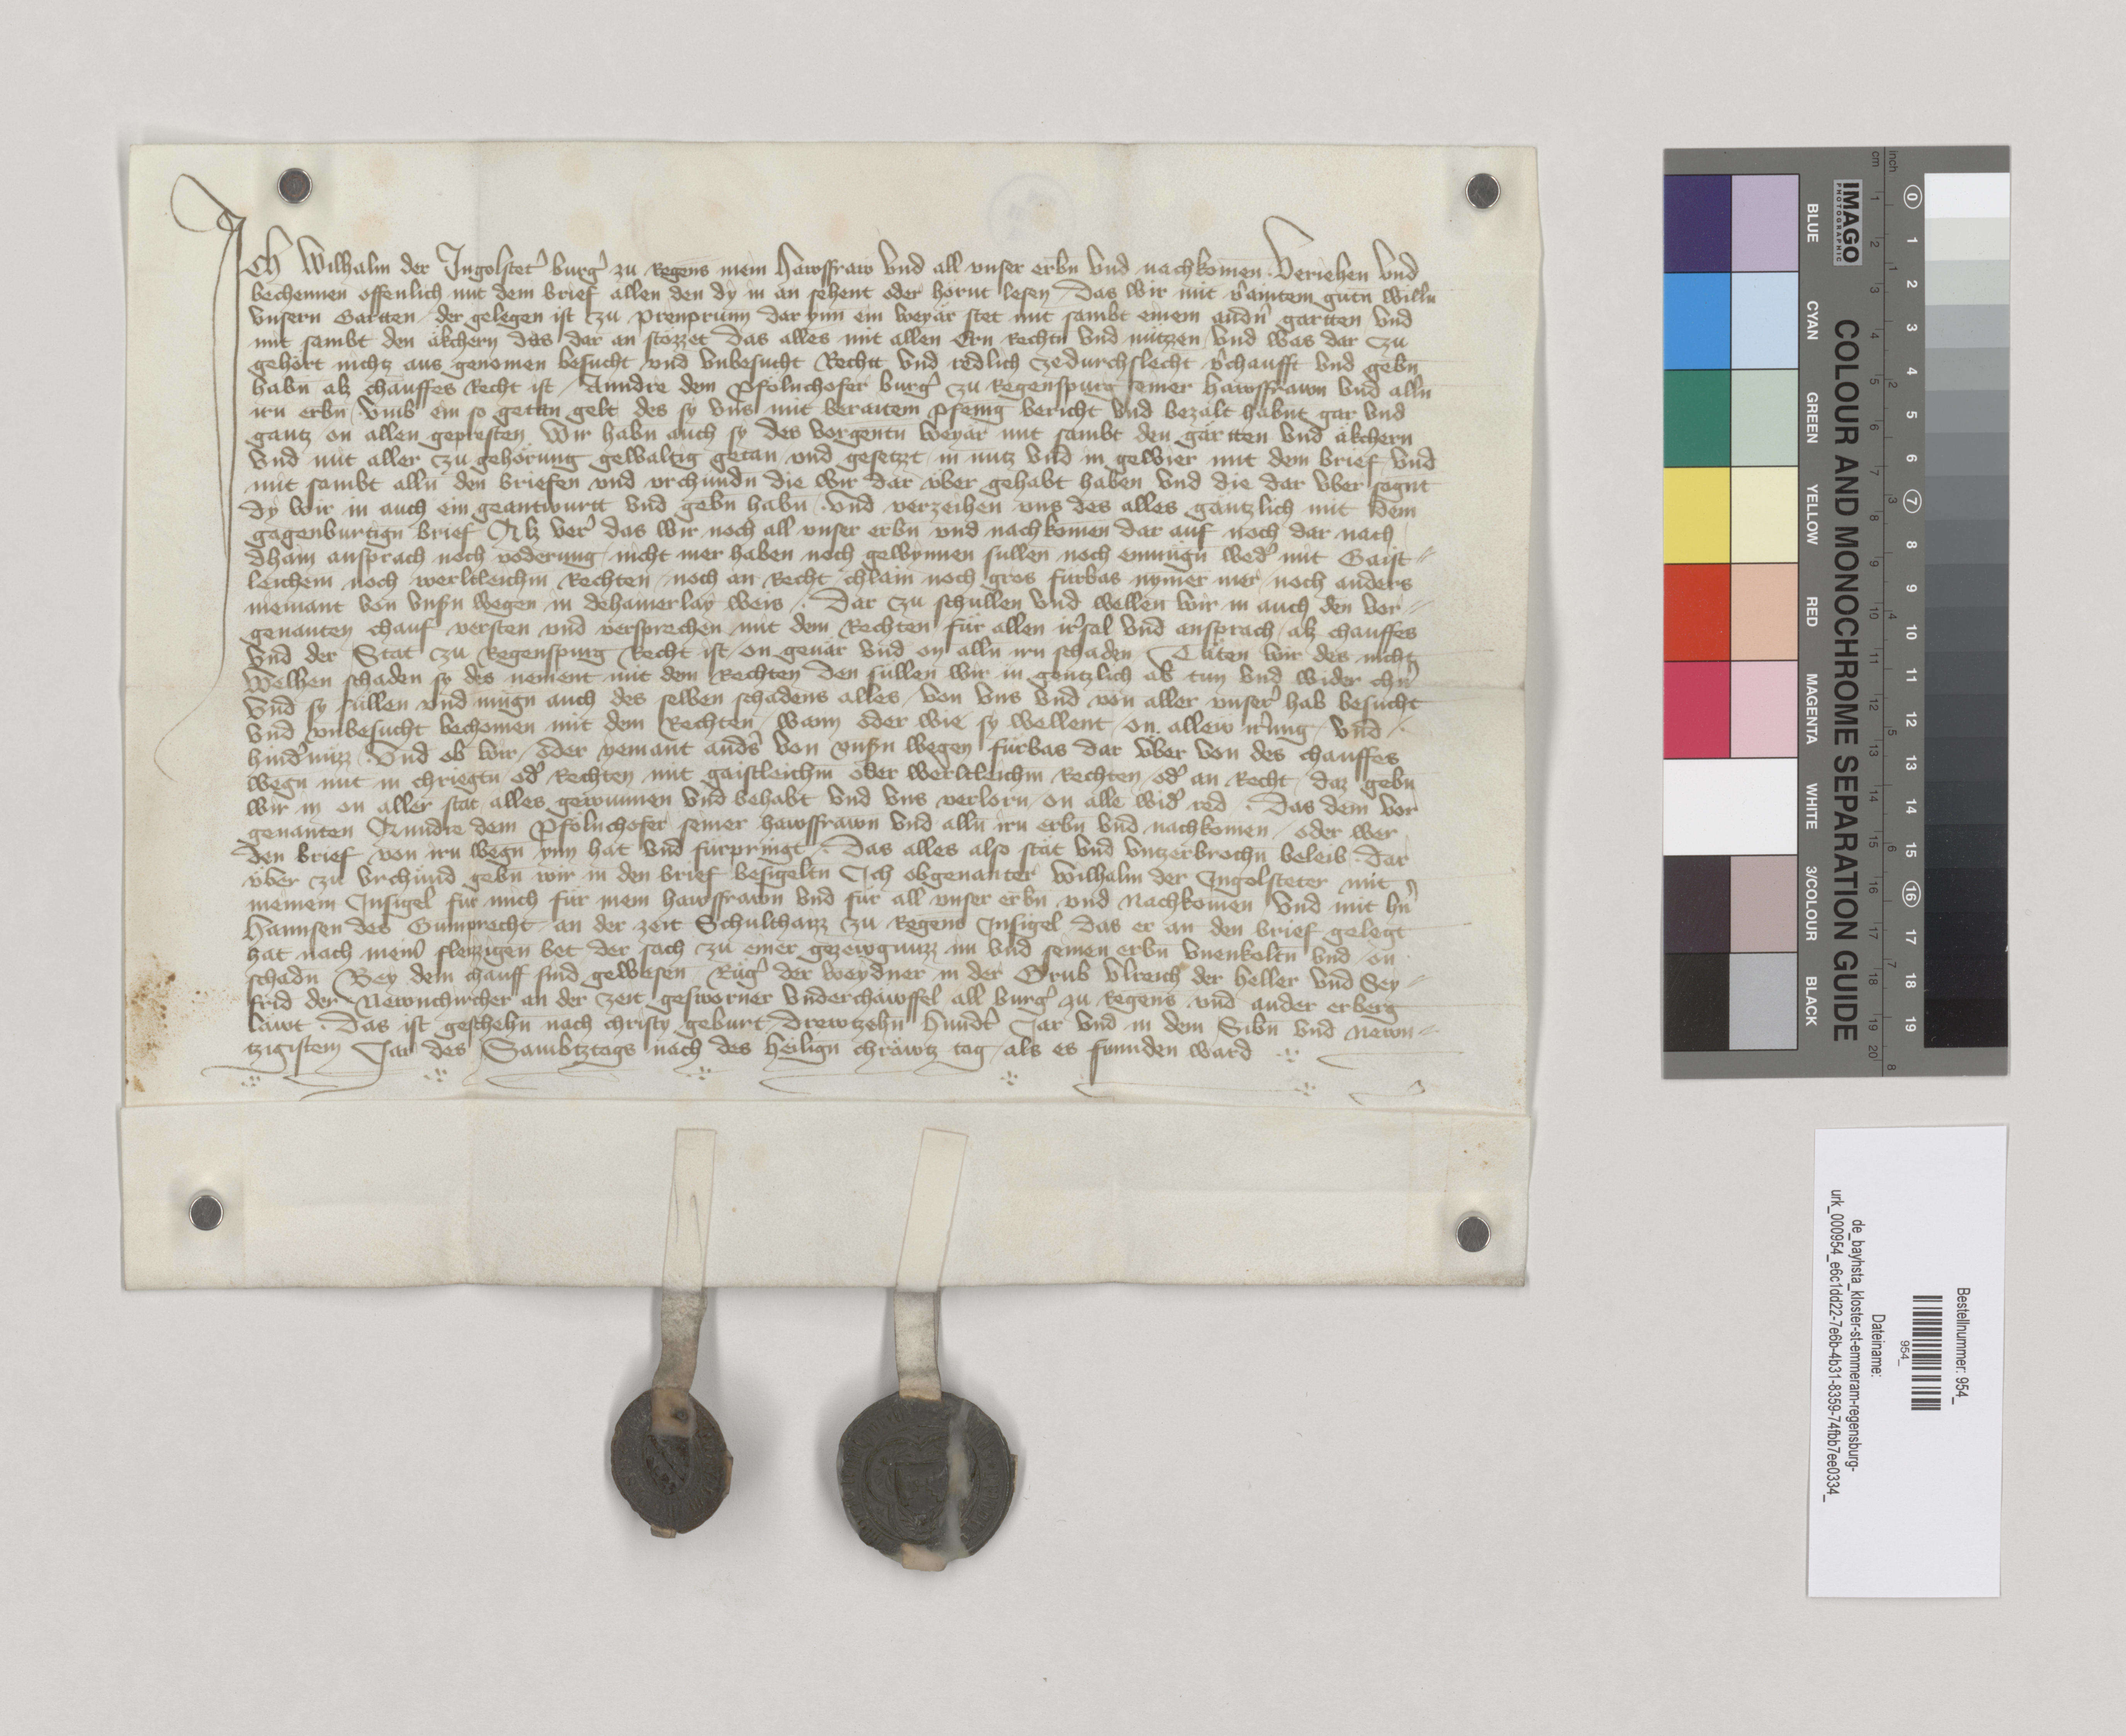 Ich Wilhalm der Ingolstet' burg' zu Regens mein Hawsfraw vnd all vnser erbn̄ vnd nachkomen Veriehen vnd
bechennen offenlich mit dem brief allen den dy in an sehent oder hörnt lesen Das wir mit v'aintem gutn̄ willn̄
vnsern Gartten der gelegen ist zu Prenprunn dar ynn ein weyär stet mit sambt einem andn̄ gartten vnd
mit sambt den äkchern das dar an stözzet das alles mit allen Ern Rechtn̄ vnd nützen vnd was dar zu
gehört nichtz aus genomen besucht vnd vnbesucht Rechtt vnd redlich zedurchslecht v'chaufft vnd gebn̄
habn̄ alz chauffes Recht ist Anndre dem Pfölnchofer burg' zu Regenspurg seiner Hawsfrawn vnd alln̄
irn erbn̄ vmb ein so getan gelt des sy vns mit beraitem pfenig bericht vnd bezalt habnt gar vnd
gantz on allen gepresten Wir habn̄ auch sy des vorgentn̄ weyär mit sambt den gärtten vnd äkchern
vnd mit aller zu gehörung gewaltig getan vnd gesetzzt in nutz vnd in gewer mit dem brief vnd
mit sambt alln̄ den briefen vnd vrchundn̄ die wir dar vber gehabt haben vnd die dar vber sagnt
dy wir in auch ein geantwurtt vnd gebn̄ habn̄ vnd verzeihen vns des alles gäntzlich mit dem
gagenburtign̄ brief Alz ver' das wir noch all vnser erbn̄ vnd nachkomen dar auf noch dar nach
dhain ansprach noch voderung nicht mer haben noch gewynnen sullen noch enmügn̄ wed' mit Gaist
leichem noch werltleichm̄ Rechten noch an Recht chlain noch gros fürbas nymer mer noch anders
niemant von vnsn̄ wegen in dehainerlay weis Dar zu schullen vnd wellen wir in auch den vor
genanten chauf versten vnd versprechen mit dem Rechten für allen ir'sal vnd ansprach alz chauffes
vnd der Stat zu Regenspurg Recht ist on geuär vnd on alln̄ irn schaden Täten wir des nicht
Welhen schaden sy des nement mit dem Rechten den süllen wir in gentzlich ab tun vnd wider chn̄
vnd sy süllen vnd mügn̄ auch des selben schadens alles von vns vnd von aller vnser' hab besucht
vnd vnbesucht bechomen mit dem Rechten wann oder wie sy wellent on allew ir'ung vnd
hind'nüzz Vnd ob wir oder yemant and's von vnsn̄ wegen fürbas dar vber von des chauffes
wegn̄ mit in chriegtn̄ od' Rechten mit gaistleichm̄ oder werltleichm̄ Rechten od' an Recht daz gebn̄
wir in on aller stat alles gewunnen vnd behabt vnd vns verlorn on alle wid' red Das dem vor
genanten Anndre dem Pfölnchofer seiner hawsfrawn vnd alln̄ irn erbn̄ vnd nachkomen oder wer
den brief von irn wegn̄ ynn hat vnd fürpringt Das alles also stät vnd vntzerbrochn̄ beleib Dar
vber zu vrchund gebn̄ wir in den brief besigeltn̄ Ich obgenanter Wilhalm der Ingolsteter mit
meinem Insigel für mich für mein hawsfrawn vnd für all vnser erbn̄ vnd Nachkomen Vnd mit hn̄
Hannsen des Gumprecht an der zeit Schulthaizz zu Regens Insigel Das er an den brief gelegt
hat nach mein' fleizzigen bet der sach zu einer gezewgnuzz im vnd seinen erbn̄ vnenkoltn̄ vnd on
schadn̄ Bey dem chauff sind gewesen Rüg' der Weydner in der Grub Vlreich der Heller vnd Sey
frid der Newnchircher an der zeit gesworner vnderchäwffel all burg' zu Regens vnd ander erberg
läwt Das ist geschehn̄ nach christy geburt drewtzehn̄ hund't Iar vnd in dem Sibn̄ vnd Newn
tzigistem Iar des Sambtztags nach des heilign̄ chräwtz tag als es funnden ward
IMAGO
PHOTOGRAPHIC
COLOUR AND MONOCHROME SEPARATION GUIDE
BLUE
CYAN
GREEN
YELLOW
RED
MAGENTA
WHITE
3/COLOUR
BLACK
cm 1 2 3 4 5 6 7 8 9 10 11 12 13 14 15 16 17 18 19 20
inch 1 2 3 4 5 6 7 8
0 1 2 3 4 5 6 7 8 9 10 11 12 13 14 15 16 17 18 19
Bestellnummer: 954_
954_
Dateiname:
de_bayhsta_kloster-st-emmeram-regensburg-
urk_000954_e6c1dd22-7e6b-4b31-8359-74fbb7ee0334_